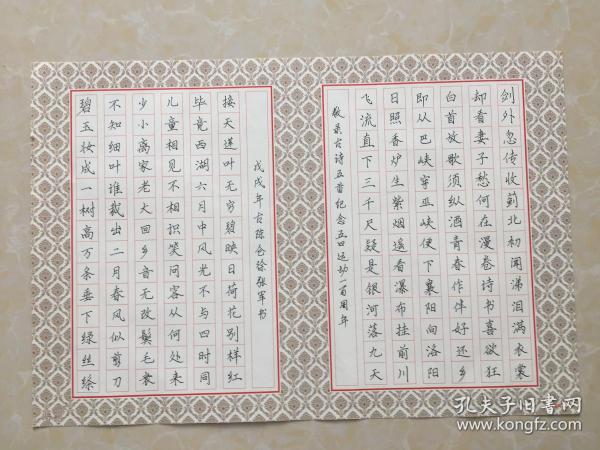 剑外忽传收蓟北初闻涕泪满衣裳
却看妻子愁何在漫卷诗书喜欲狂
白首放歌须纵酒青春作伴好还乡
即从巴峡穿巫峡便下襄阳向洛阳
日照香炉生紫烟遥看瀑布挂前川
飞流直下三千尺疑是银河落九天
敬录古诗五首纪念五四运动一百周年
碧玉妆成一树高万条垂下绿丝绦
不知细叶谁裁出二月春风似剪刀
少小离家老大回乡音无改鬓毛衰
儿童相见不相识笑问客从何处来
毕竟西湖六月中风光不与四时同
接天莲叶无穷碧映日荷花别样红
戊戌年古陈仓徐张军书
孔夫子旧书网
www.kongfz.com